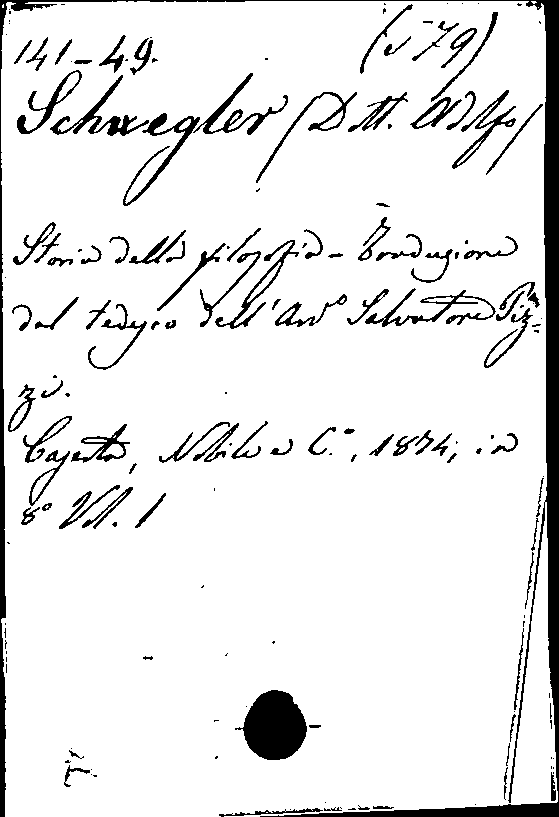 141-49. (579)
Schwegler (Dott. Adolfo)
Storia della filosofia - Traduzione
dal tedesco dell'Avv° Salvatore Piz=
zi.
Caserta, Nobile e C.°, 1874, in
8° Vol. 1